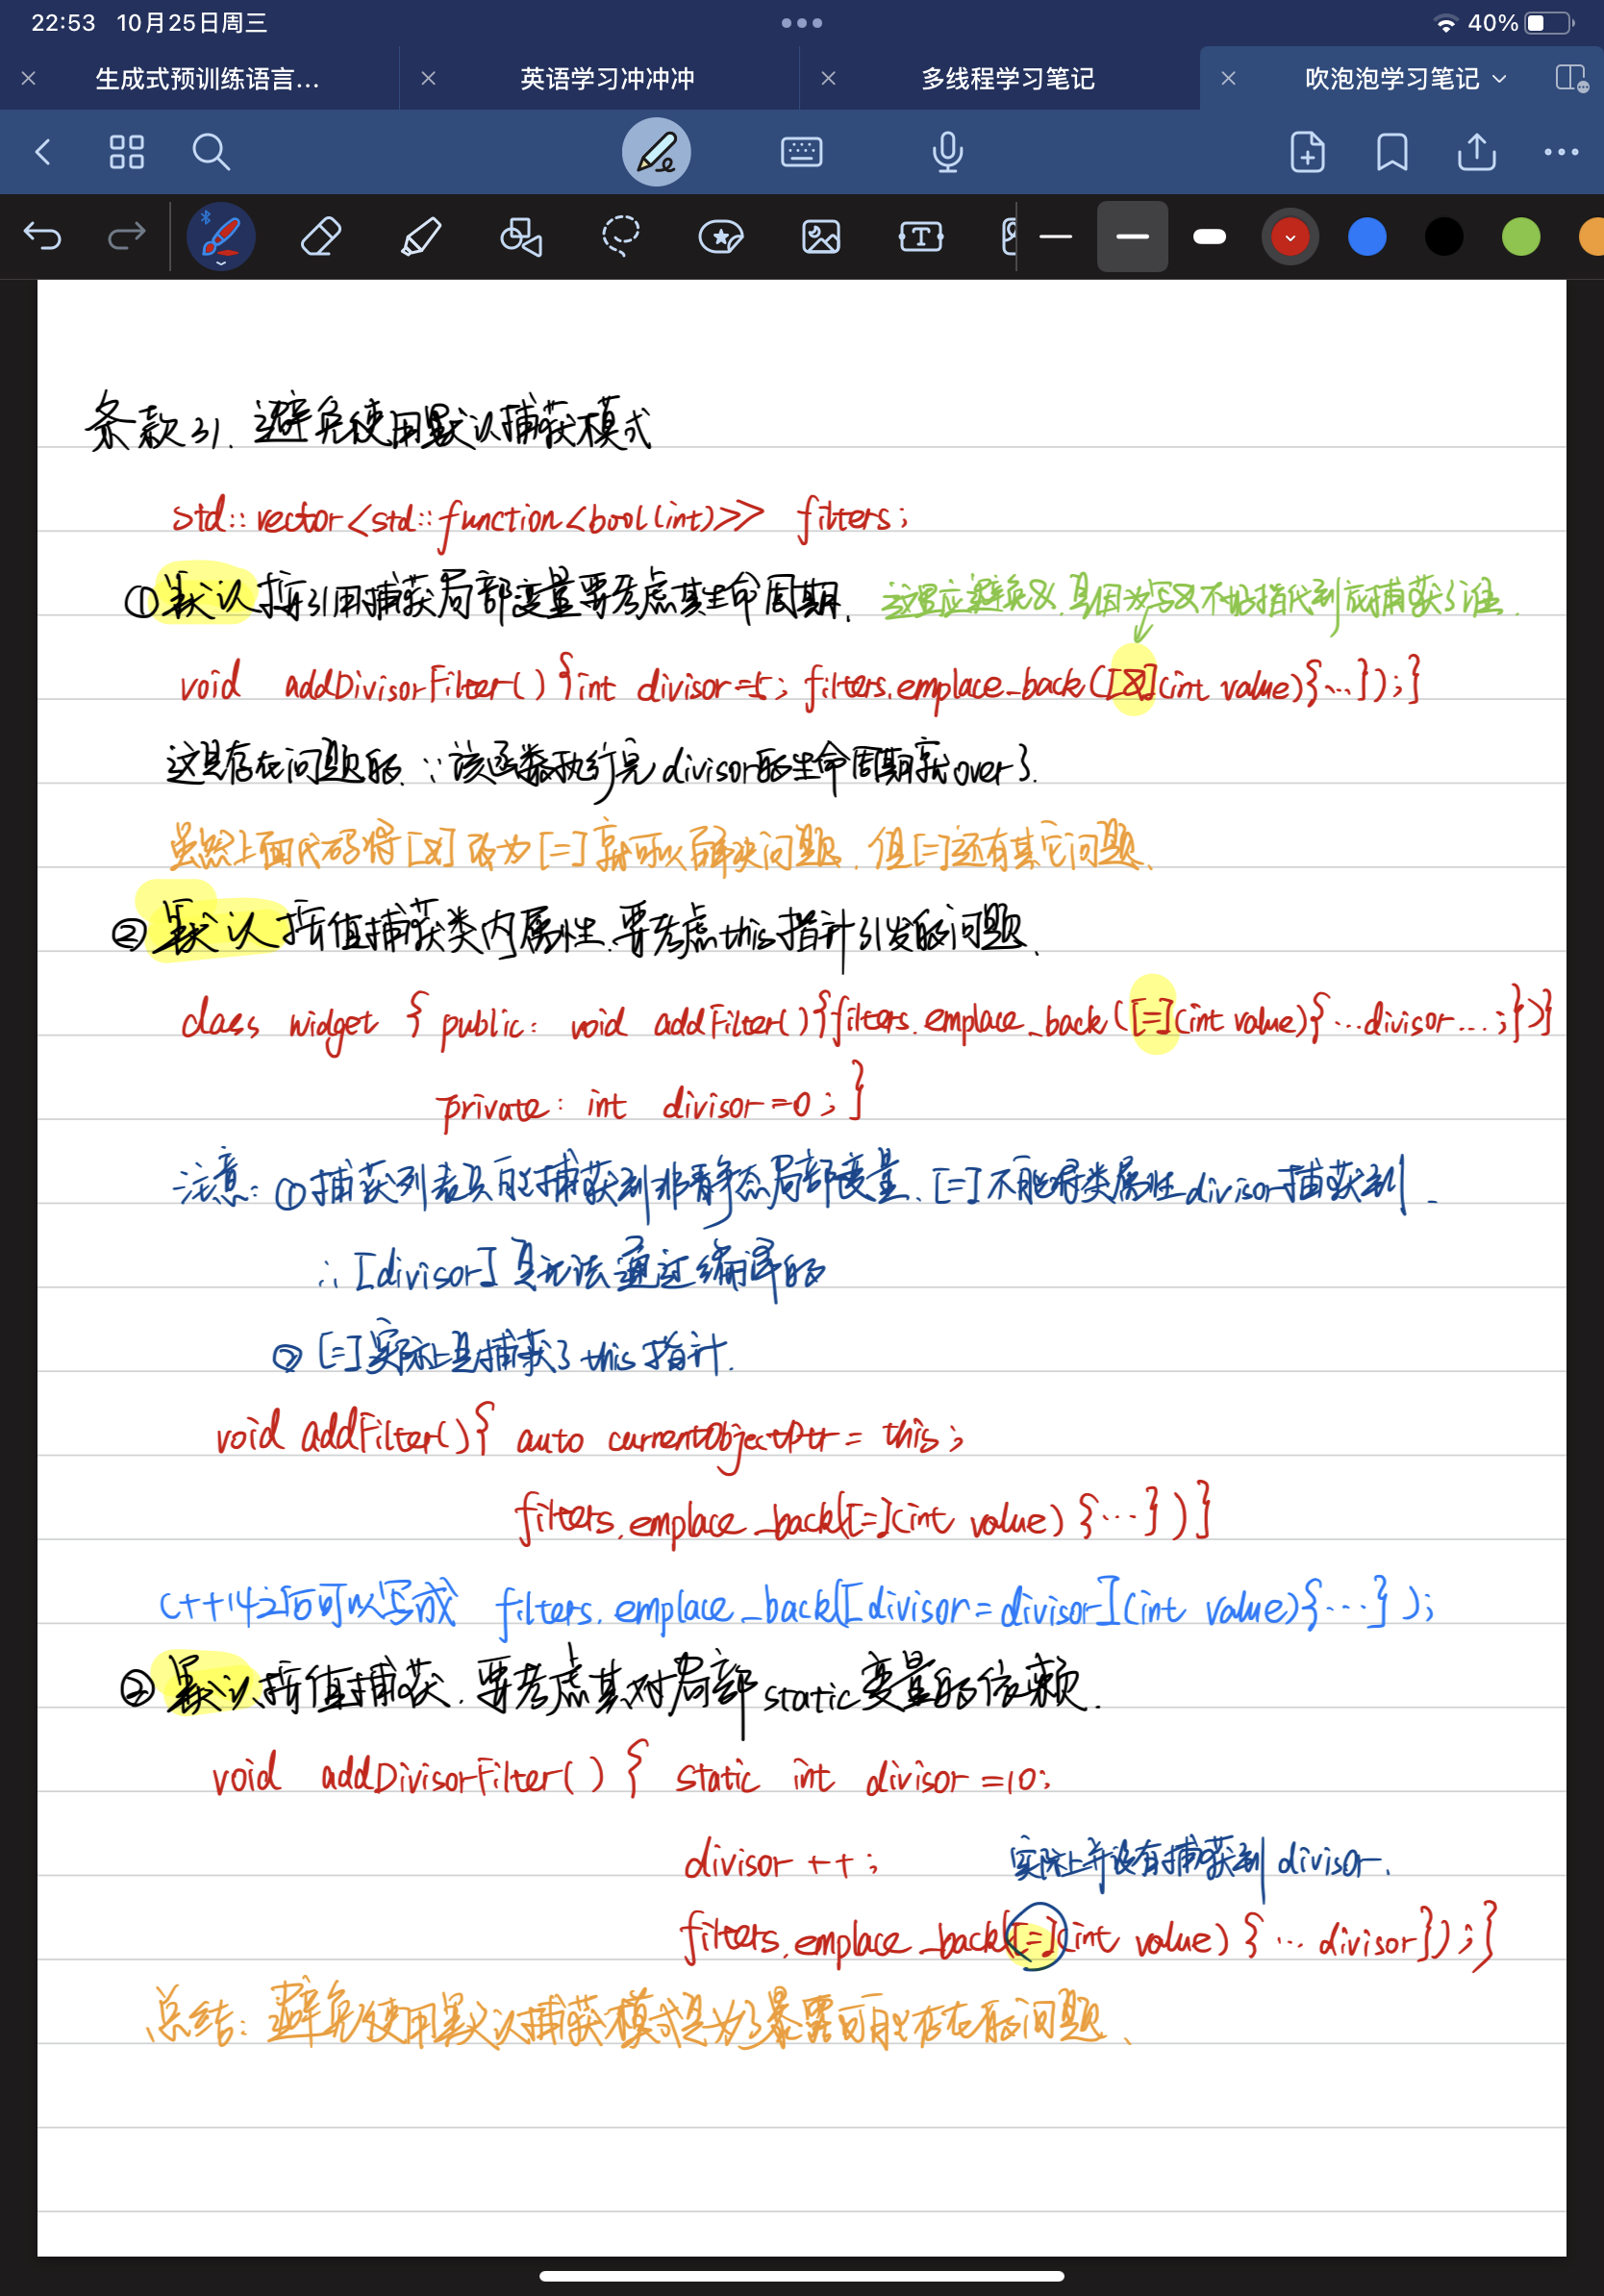 22:53 10月25日周三
40%
生成式预训练语言... 英语学习冲冲冲 多线程学习笔记 吹泡泡学习笔记
条款31. 避免使用默认捕获模式
std::vector<std::function<bool(int)>> filters;
① 默认按引用捕获局部变量要考虑其生命周期. 这里应避免&,是因为写&不好指代到底捕获了谁.
void addDivisorFilter() {int divisor=5; filters.emplace_back([&](int value){...});}
这是存在问题的. ∵该函数执行完divisor的生命周期就over了.
虽然上面代码将[&]改为[=]就可以解决问题. 但[=]还有其它问题.
② 默认按值捕获类内属性.要考虑this指针引发的问题.
class widget { public: void addFilter(){filters.emplace_back([=](int value){...divisor...;})}
private: int divisor=0;}
注意: ① 捕获列表只能捕获到非静态局部变量. [=]不能将类属性divisor捕获到.
∴ [divisor] 是无法通过编译的
② [=]实际上是捕获了this指针.
void addFilter(){ auto currentObjectPtr = this;
filters.emplace_back([=](int value) {...})}
C++14之后可以写成 filters.emplace_back([divisor=divisor](int value){...});
③ 默认按值捕获.要考虑其对局部static变量的依赖.
void addDivisorFilter() { static int divisor=10;
divisor++; 实际上并没有捕获到divisor.
filters.emplace_back([=](int value) {... divisor});}
总结: 避免使用默认捕获模式是为了暴露可能存在的问题.